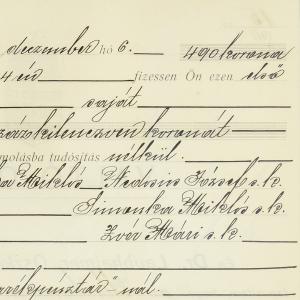 deczember hó 6. 490 korona
4 én fizessen Ön ezen első
saját
százkilenczven koronát
molásba tudósítás nélkül.
Miklós Nedosin József s.k.
Simonka Miklós s.k.
Zvér Mári s.k.
rékpénztár"-nál.